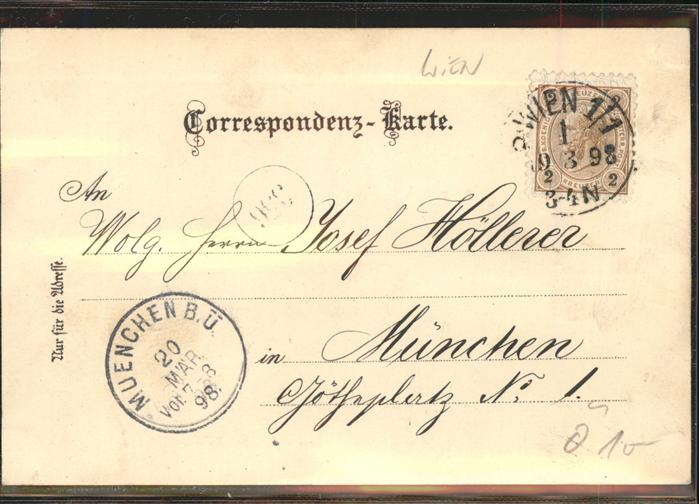 WIEN
Correspondenz-Karte.
WIEN 1/1
1
9 3 98
3-4N
2 2
An
Wolg. Herrn Josef Höllerer
Nur für die Adresse.
MUENCHEN B.Ü.
20
MAR
Vor. 7-8
98
in München
Götheplertz No. 1.